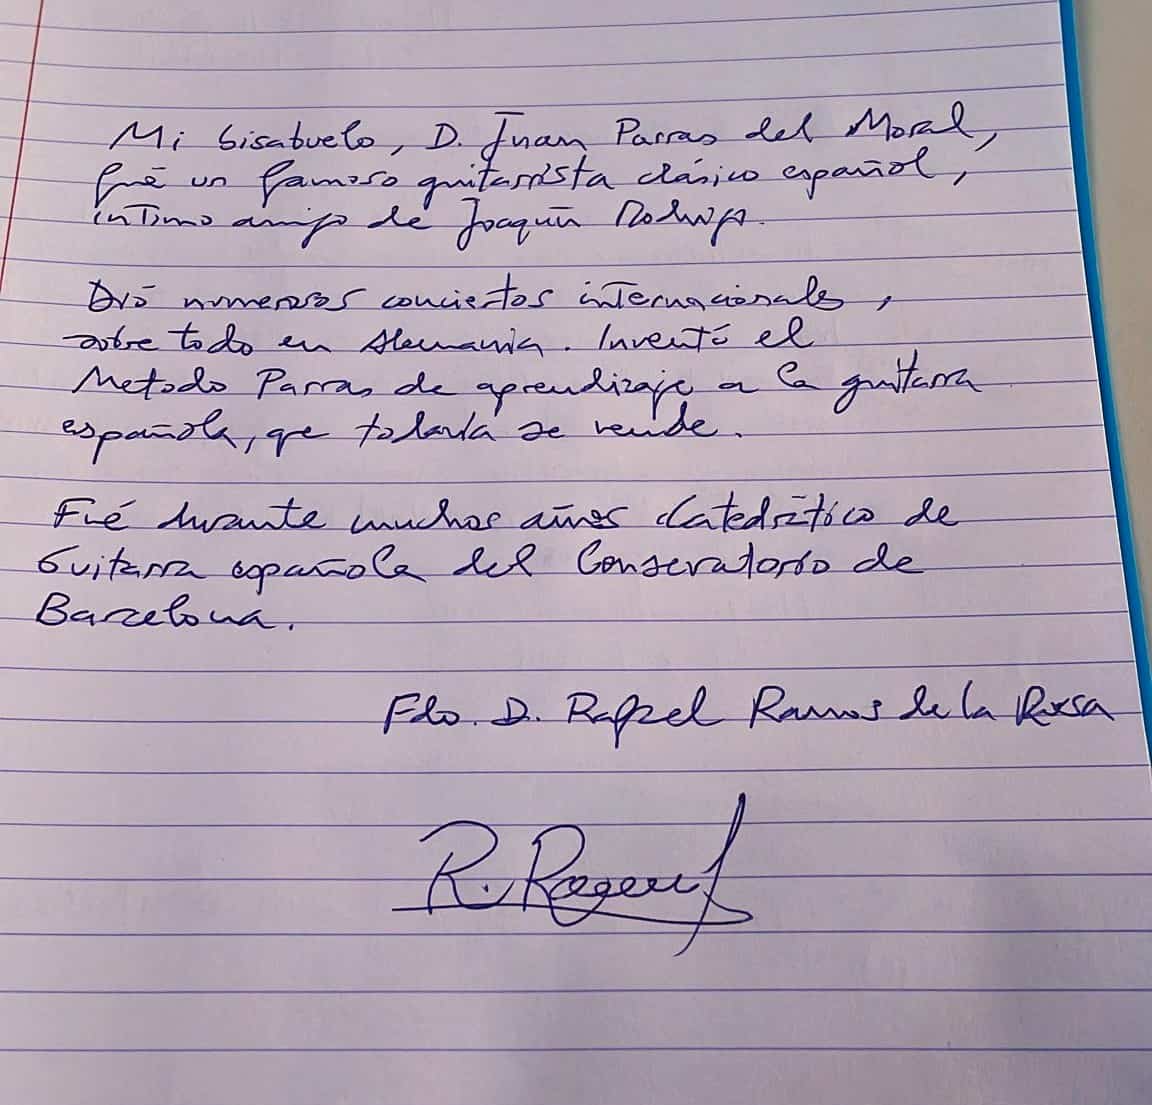 Mi bisabuelo, D. Juan Parras del Moral,
fué un famoso guitarrista clásico español,
íntimo amigo de Joaquín Rodrigo.
Dió numerosos conciertos internacionales,
sobre todo en Alemania. Inventó el
Metodo Parras de aprendizaje a la guitarra
española, que todavía se vende.
Fué durante muchos años Catedrático de
Guitarra española del Conservatorio de
Barcelona.
Fdo. D. Rafael Ramos de la Rosa